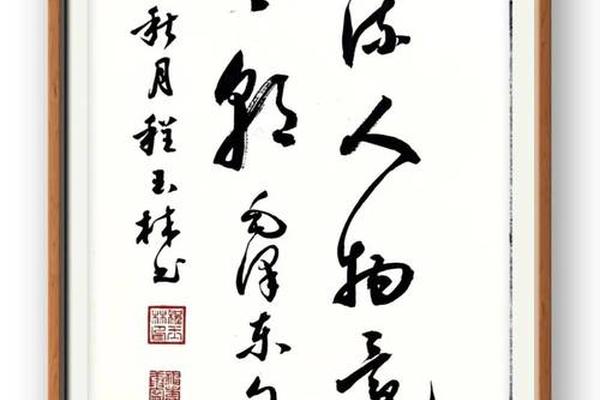 流人物
朝毛泽东
秋月程玉林书